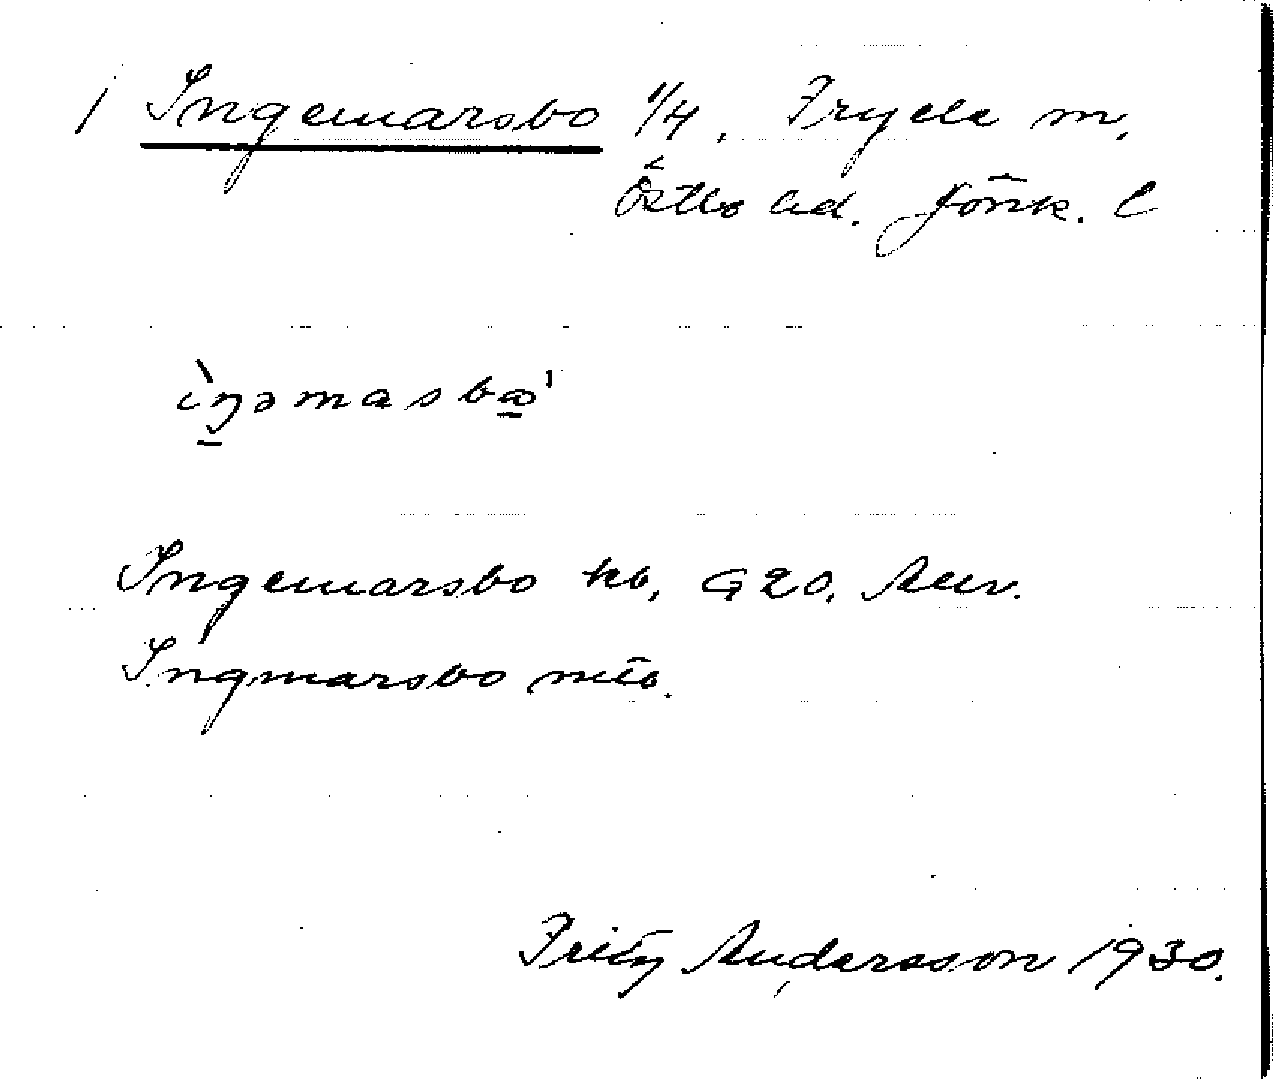 1 Ingemarsbo 1/4, Fryele sn,
Östbo hd. Jönk. l
ìŋəmasbω̱ˈ
Ingemarsbo kb, G 20, Anv.
Ingmarsbo mtb.
Fritz Andersson 1930.